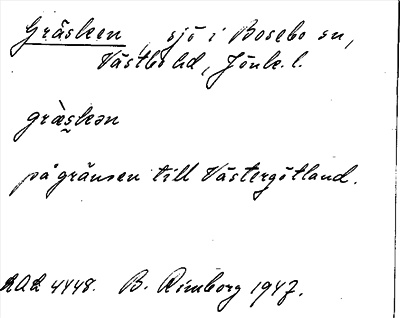 Gräsken, sjö i Bosebo sn,
Västbo hd, Jönk. l.
gràskən
på gränsen till Västergötland.
4448. B. Rimborg 1947.